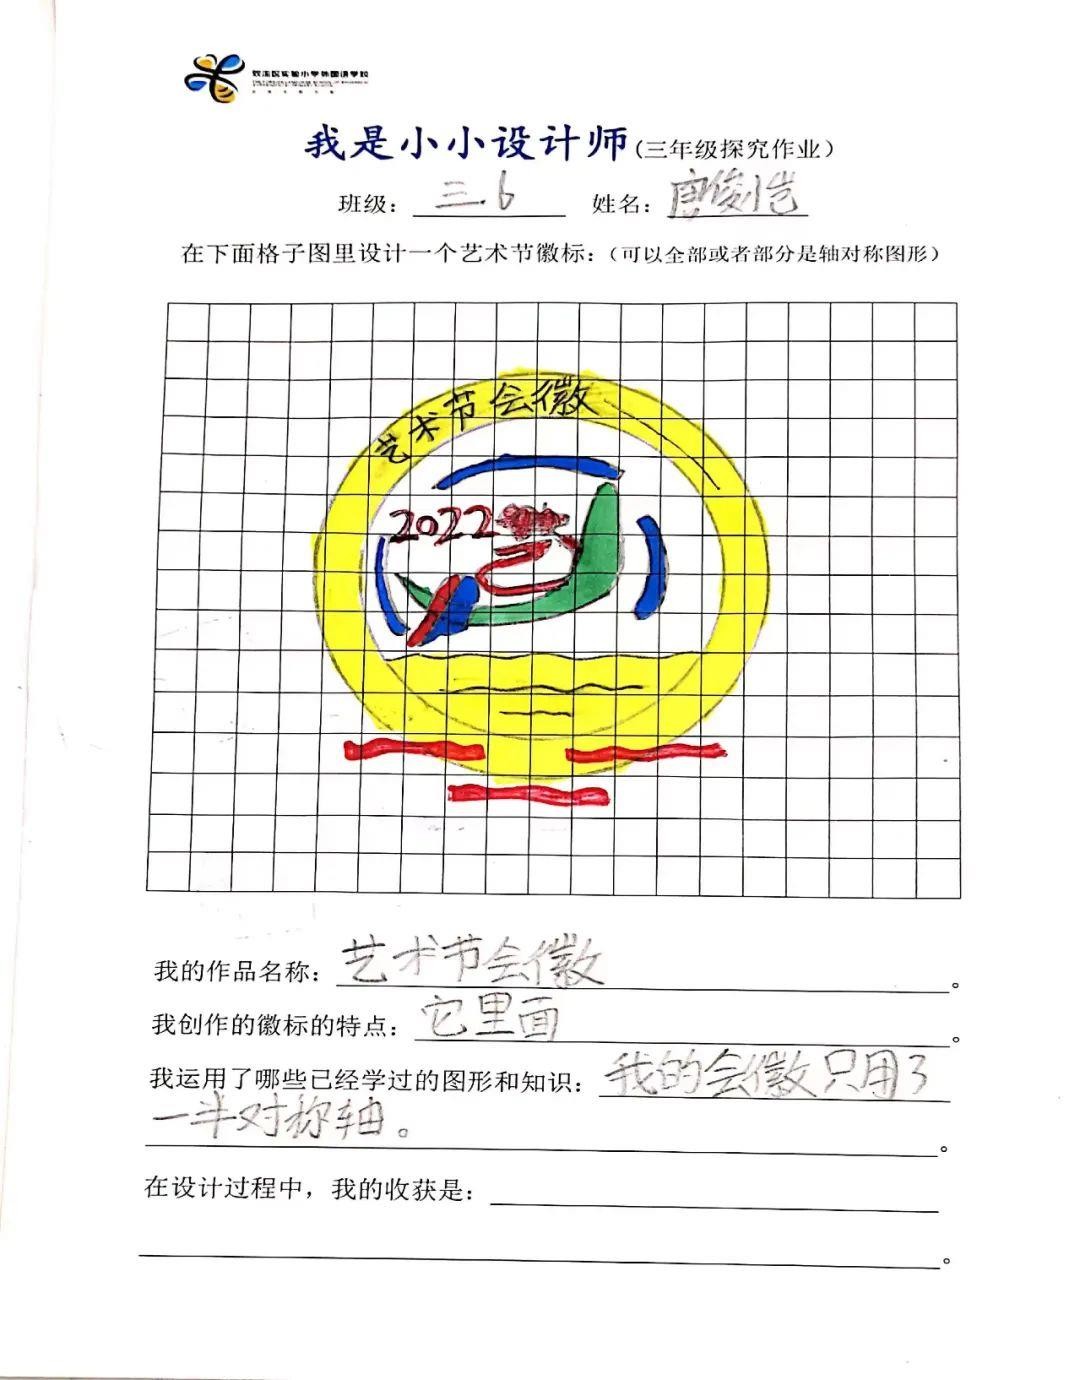 双流区实验小学外国语学校
我是小小设计师(三年级探究作业)
班级：三.6 姓名：唐俊恺
在下面格子图里设计一个艺术节徽标：（可以全部或者部分是轴对称图形）
艺术节会徽
2022
我的作品名称：艺术节会徽。
我创作的徽标的特点：它里面。
我运用了哪些已经学过的图形和知识：我的会徽只用了
一半对称轴。。
在设计过程中，我的收获是：
。